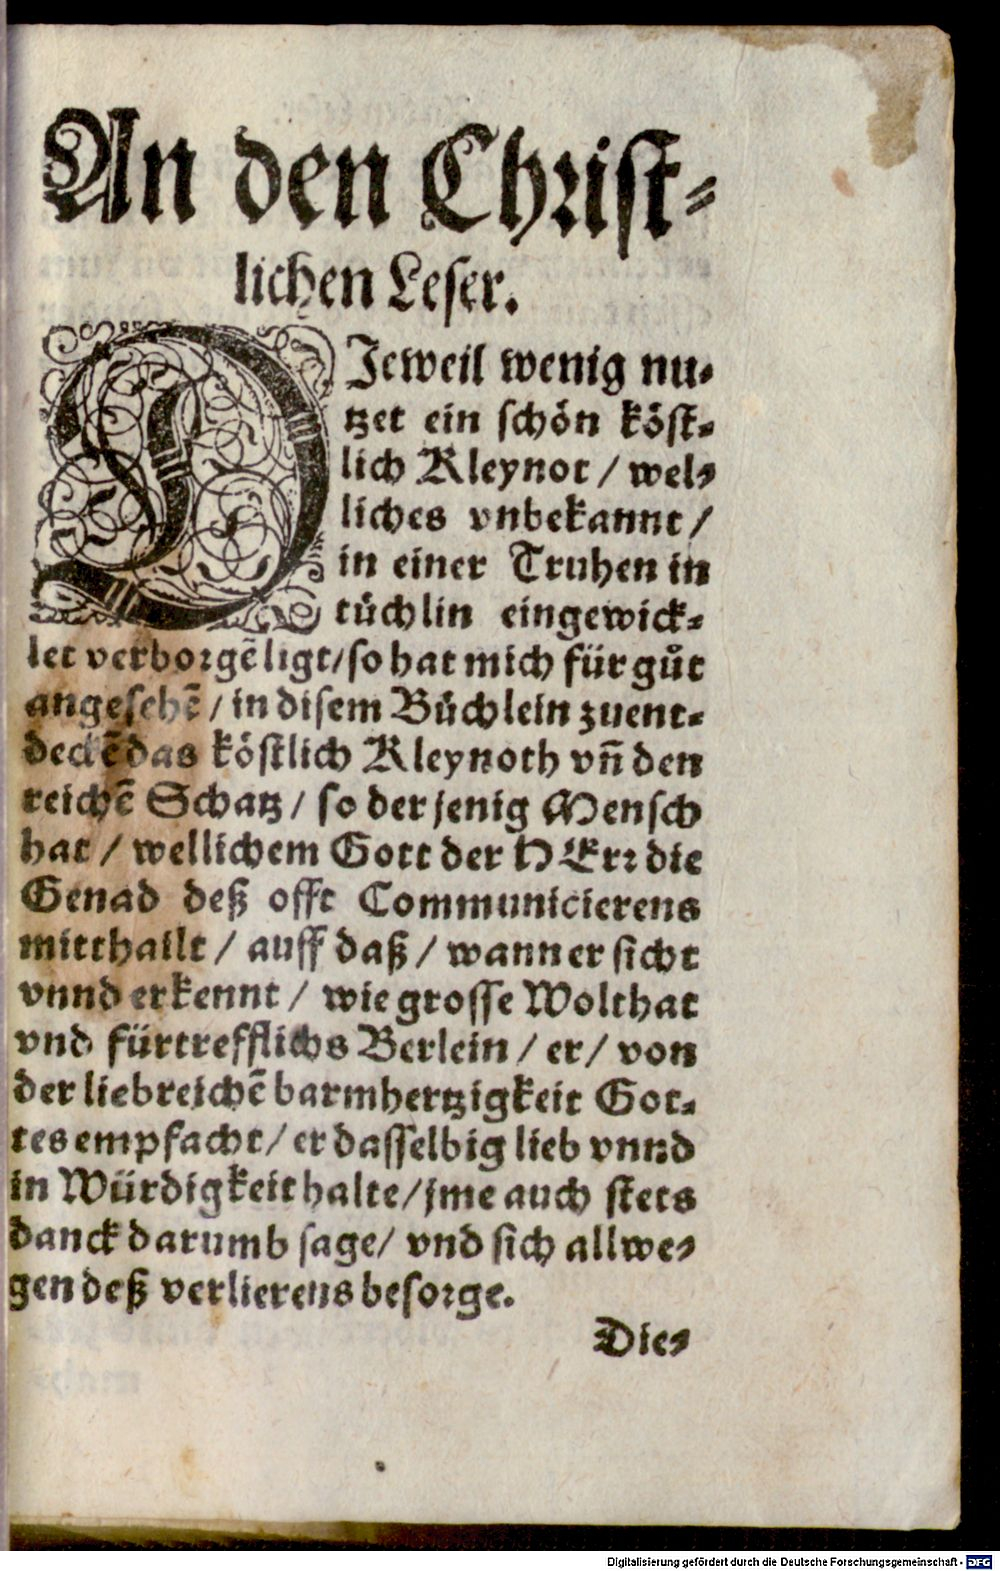 An den Christ-
lichen Leser.
DJeweil wenig nu-
tzet ein schön köst-
lich Kleynot / wel-
liches vnbekannt /
in einer Truhen in
tüchlin eingewick-
let verborgẽ ligt / so hat mich für gůt
angesehẽ / in disem Büchlein zuent-
deckẽ das köstlich Kleynoth vñ den
reichẽ Schatz / so der jenig Mensch
hat / wellichem Gott der HErr die
Genad deß offt Communicierens
mitthailt / auff daß / wann er sicht
vnnd erkennt / wie grosse Wolthat
vnd fürtrefflichs Berlein / er / von
der liebreichẽ barmhertzigkeit Got-
tes empfacht / er dasselbig lieb vnnd
in Würdigkeit halte / jme auch stets
danck darumb sage / vnd sich allwe-
gen deß verlierens besorge.
Die-
Digitalisierung gefördert durch die Deutsche Forschungsgemeinschaft - DFG